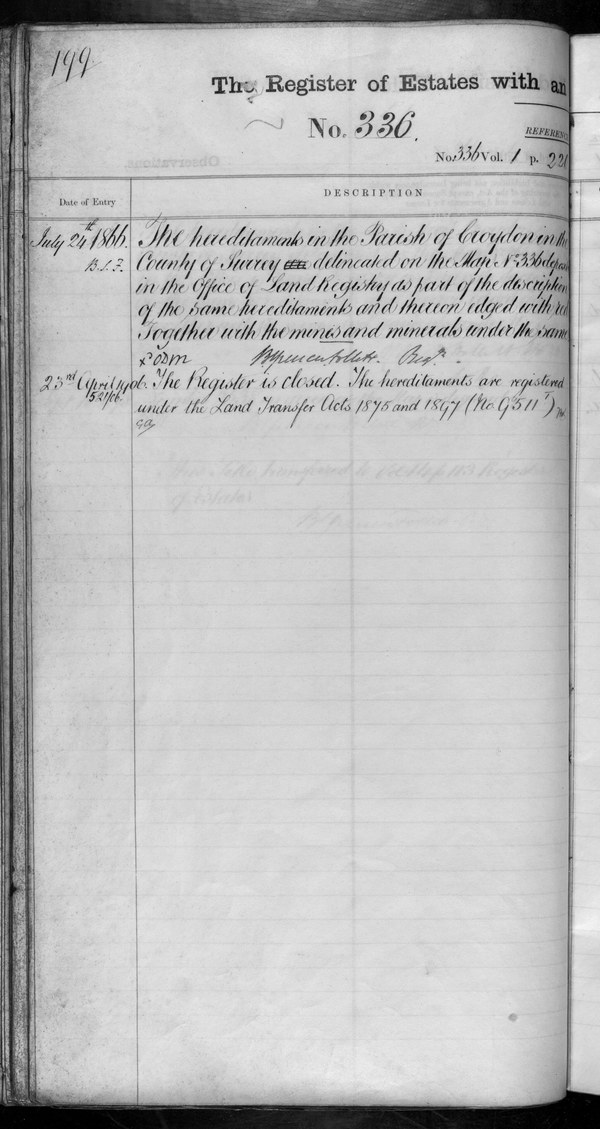 199
The Register of Estates with an
No. 336.
REFERENC
No. 336 Vol. 1 p. 221
Date of Entry
DESCRIPTION
July 24th 1866.
B.S.F.
The hereditaments in the Parish of Croydon in the
County of Surrey delineated on the Map No. 336 depos
in the Office of Land Registry as part of the description
of the same hereditaments and thereon edged with red
Together with the mines and minerals under the same
Regr.
23rd April 1906.
The Register is closed. The hereditaments are registered
under the Land Transfer Acts 1875 and 1897 (No. 9511)